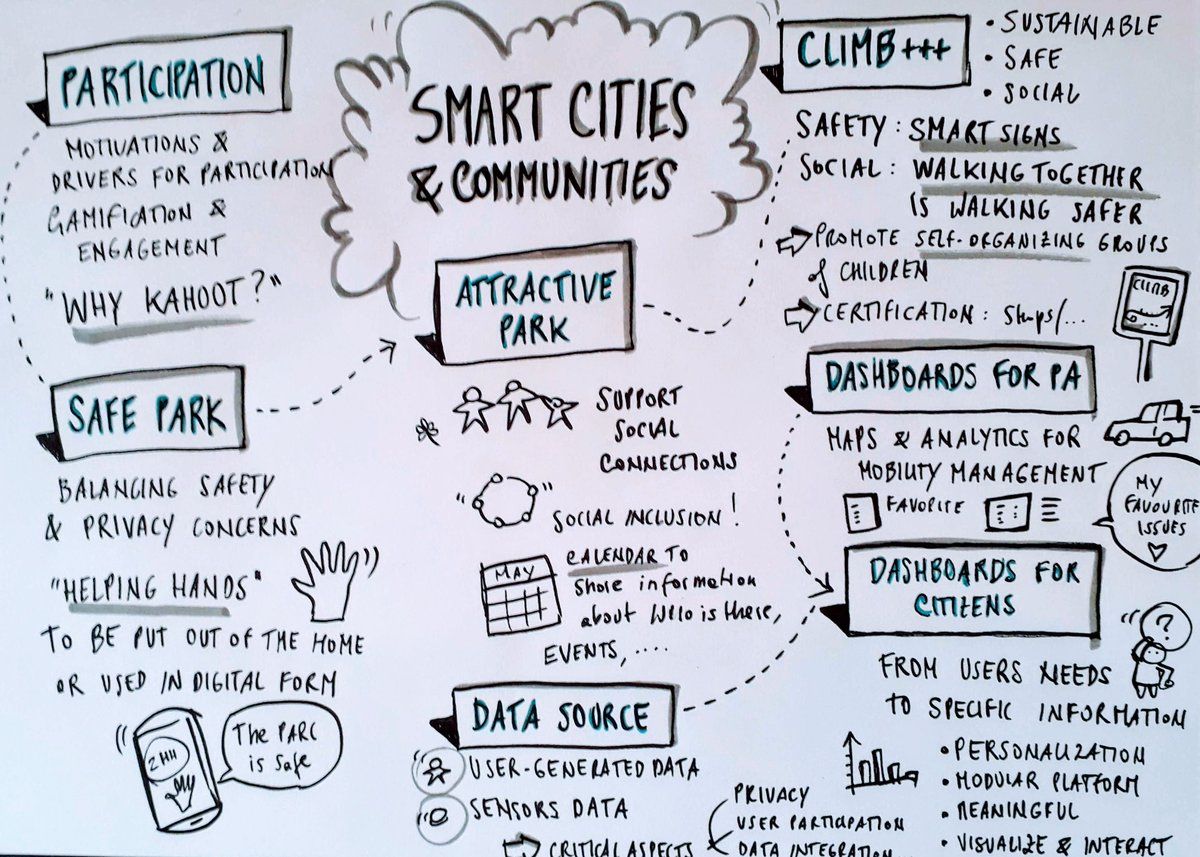 SMART CITIES
& COMMUNITIES
PARTICIPATION
MOTIVATIONS &
DRIVERS FOR PARTICIPATION
GAMIFIATION &
ENGAGEMENT
"WHY KAHOOT?"
SAFE PARK
BALANCING SAFETY
& PRIVACY CONCERNS
"HELPING HANDS"
TO BE PUT OUT OF THE HOME
OR USED IN DIGITAL FORM
The PARC
is safe
ATTRACTIVE
PARK
SUPPORT
SOCIAL
CONNECTIONS
SOCIAL INCLUSION!
MAY
CALENDAR TO
share information
about who is there,
EVENTS, ....
DATA SOURCE
USER-GENERATED DATA
SENSORS DATA
CRITICAL ASPECTS
PRIVACY
USER PARTICIPATION
DATA INTEGRATION
CLIMB+++
• SUSTAINABLE
• SAFE
• SOCIAL
SAFETY: SMART SIGNS
SOCIAL: WALKING TOGETHER
IS WALKING SAFER
PROMOTE SELF-ORGANIZING GROUPS
of CHILDREN
CERTIFICATION: /...
CLIMB
DASHBOARDS FOR PA
MAPS & ANALYTICS FOR
MOBILITY MANAGEMENT
FAVORITE
MY
FAVOURITE
ISSUES
DASHBOARDS FOR
CITIZENS
?
FROM USERS NEEDS
TO SPECIFIC INFORMATION
• PERSONALIZATION
• MODULAR PLATFORM
• MEANINGFUL
• VISUALIZE & INTERACT